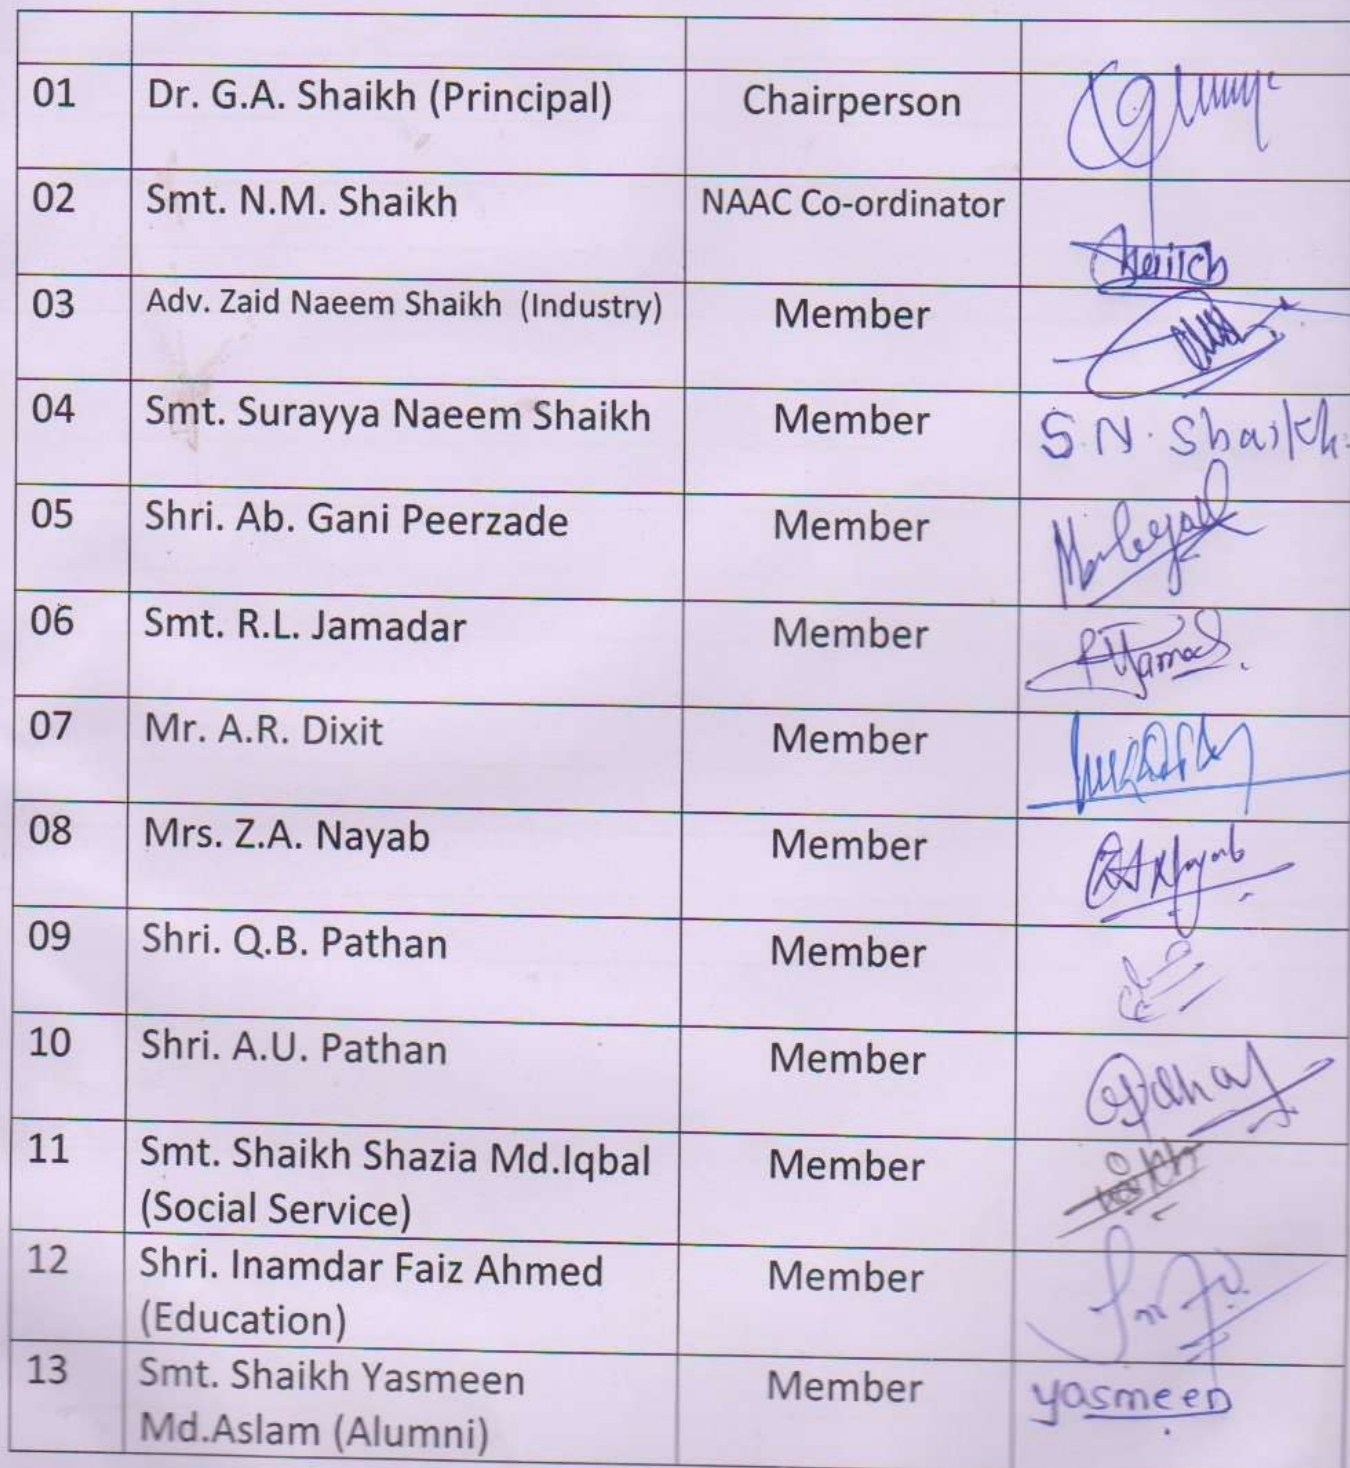 01 Dr. G.A. Shaikh (Principal) Chairperson
02 Smt. N.M. Shaikh NAAC Co-ordinator
Shaikh
03 Adv. Zaid Naeem Shaikh (Industry) Member
04 Smt. Surayya Naeem Shaikh Member S.N. Shaikh
05 Shri. Ab. Gani Peerzade Member
06 Smt. R.L. Jamadar Member
07 Mr. A.R. Dixit Member
08 Mrs. Z.A. Nayab Member ZA Nayab
09 Shri. Q.B. Pathan Member
10 Shri. A.U. Pathan Member
11 Smt. Shaikh Shazia Md.Iqbal Member
(Social Service)
12 Shri. Inamdar Faiz Ahmed Member
(Education)
13 Smt. Shaikh Yasmeen Member yasmeen
Md.Aslam (Alumni)